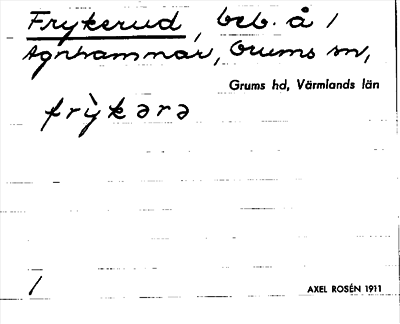 Frykerud, beb. å /
Agnhammar, Grums sn,
Grums hd, Värmlands län
frỳkərə
/
AXEL ROSÉN 1911